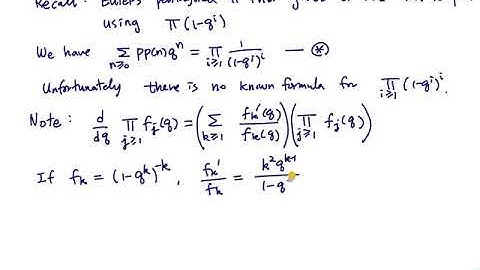 Recall : Euler's pentagonal # thm gives
using π(1-qⁱ)
We have ∑_{n≥0} pp(n) qⁿ = ∏_{i≥1} 1/(1-qⁱ)ⁱ — ⊛
Unfortunately there is no known formula for ∏_{i≥1} (1-qⁱ)ⁱ.
Note : d/dq ∏_{j≥1} f_j(q) = (∑_{k≥1} f_k'(q)/f_k(q)) (∏_{j≥1} f_j(q))
If f_k = (1-q^k)^{-k}, f_k'/f_k = k²q^{k-1}/1-q